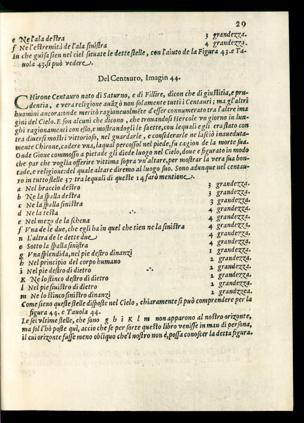 29
e Ne l'ala destra 3 grandezza.
f Ne l'estremità de l'ala sinistra 4 grandezza.
In che guisa sien nel ciel situate le dette stelle, con l'aiuto de la Figura 43. e Ta-
uola 43. si può vedere.
Del Centauro, Imagin 44.
CHirone Centauro nato di Saturno, e di Fillire, dicon che di giustitia, e pru-
dentia, e vera religione auãzò non solamente tutti i Centauri; ma gli altri
huomini ancora: onde meritò ragioneuolmente d'esser connumerato tra l'altre ima
gini del Cielo. E son alcuni che dicono, che trouandosi Hercole vn giorno in lun-
ghi ragionamenti con esso, e mostrandogli le saette, con lequali egli era stato con
tra diuersi mostri vittorioso, nel guardarle, e considerarle ne lasciò inauedut­a-
mente Chirone, cadere vna, laqual percossol nel piede, fu cagion de la morte sua.
Onde Gioue commosso a pietade gli diede luogo nel Cielo, doue è figurato in modo
che par che voglia offerire vittima sopra vn'altare, per mostrar la vera sua bon-
tade, e religione: del quale altare diremo al luogo suo. Sono adunque nel centau-
ro in tutto stelle 37 tra lequali di quelle 14 farò mentione.
a Nel braccio destro 3 grandezza.
b Ne la spalla destra 3 grandezza.
c Ne la spalla sinistra 3 grandezza.
d Ne la testa 4 grandezza.
e Nel mezo de la schena 4 grandezza.
f Vna de le due, che egli ha in quel che tien ne la sinistra 4 grandezza.
n L'altra de le dette due 4 grandezza.
o Sotto la spalla sinistra 4 grandezza.
g Vna splendida, nel pie destro dinanzi 1 grandezza.
h Nel principio del corpo humano 2 grandezza.
i Nel pie destro di dietro 2 grandezza.
K Ne lo stinco destro di dietro 2 grandezza.
l Nel pie sinistro di dietro 2 grandezza.
m Ne lo stinco sinistro dinanzi 2 grandezza.
Come sieno queste stelle disposte nel Cielo, chiaramente si può comprender per la
figura 44. e Tauola 44.
Le sei vltime stelle, che sono g h i K l m non apparono al nostro orizonte,
ma sol l'hò poste quì, acciò che se per sorte questo libro venisse in man di persona,
il cui orizonte fusse meno obliquo che'l nostro non è, possa conoscer la detta figura.